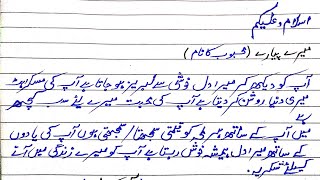 اسلام و علیکم
میرے پیارے (محبوب کا نام)
آپ کو دیکھ کر میرا دل خوشی سے لبریز ہو جاتا ہے آپ کی مسکراہٹ
میری دنیا روشن کر دیتا ہے آپ کی محبت میرے لئے سب کچھ
ہے
میں آپ کے ساتھ ہر لمحہ کو قیمتی سمجھتا/سمجھتی ہوں آپ کی یادوں
کے ساتھ میرا دل ہمیشہ خوش رہتا ہے آپ کو میرے زندگی میں آنے
کیلئے شکریہ۔